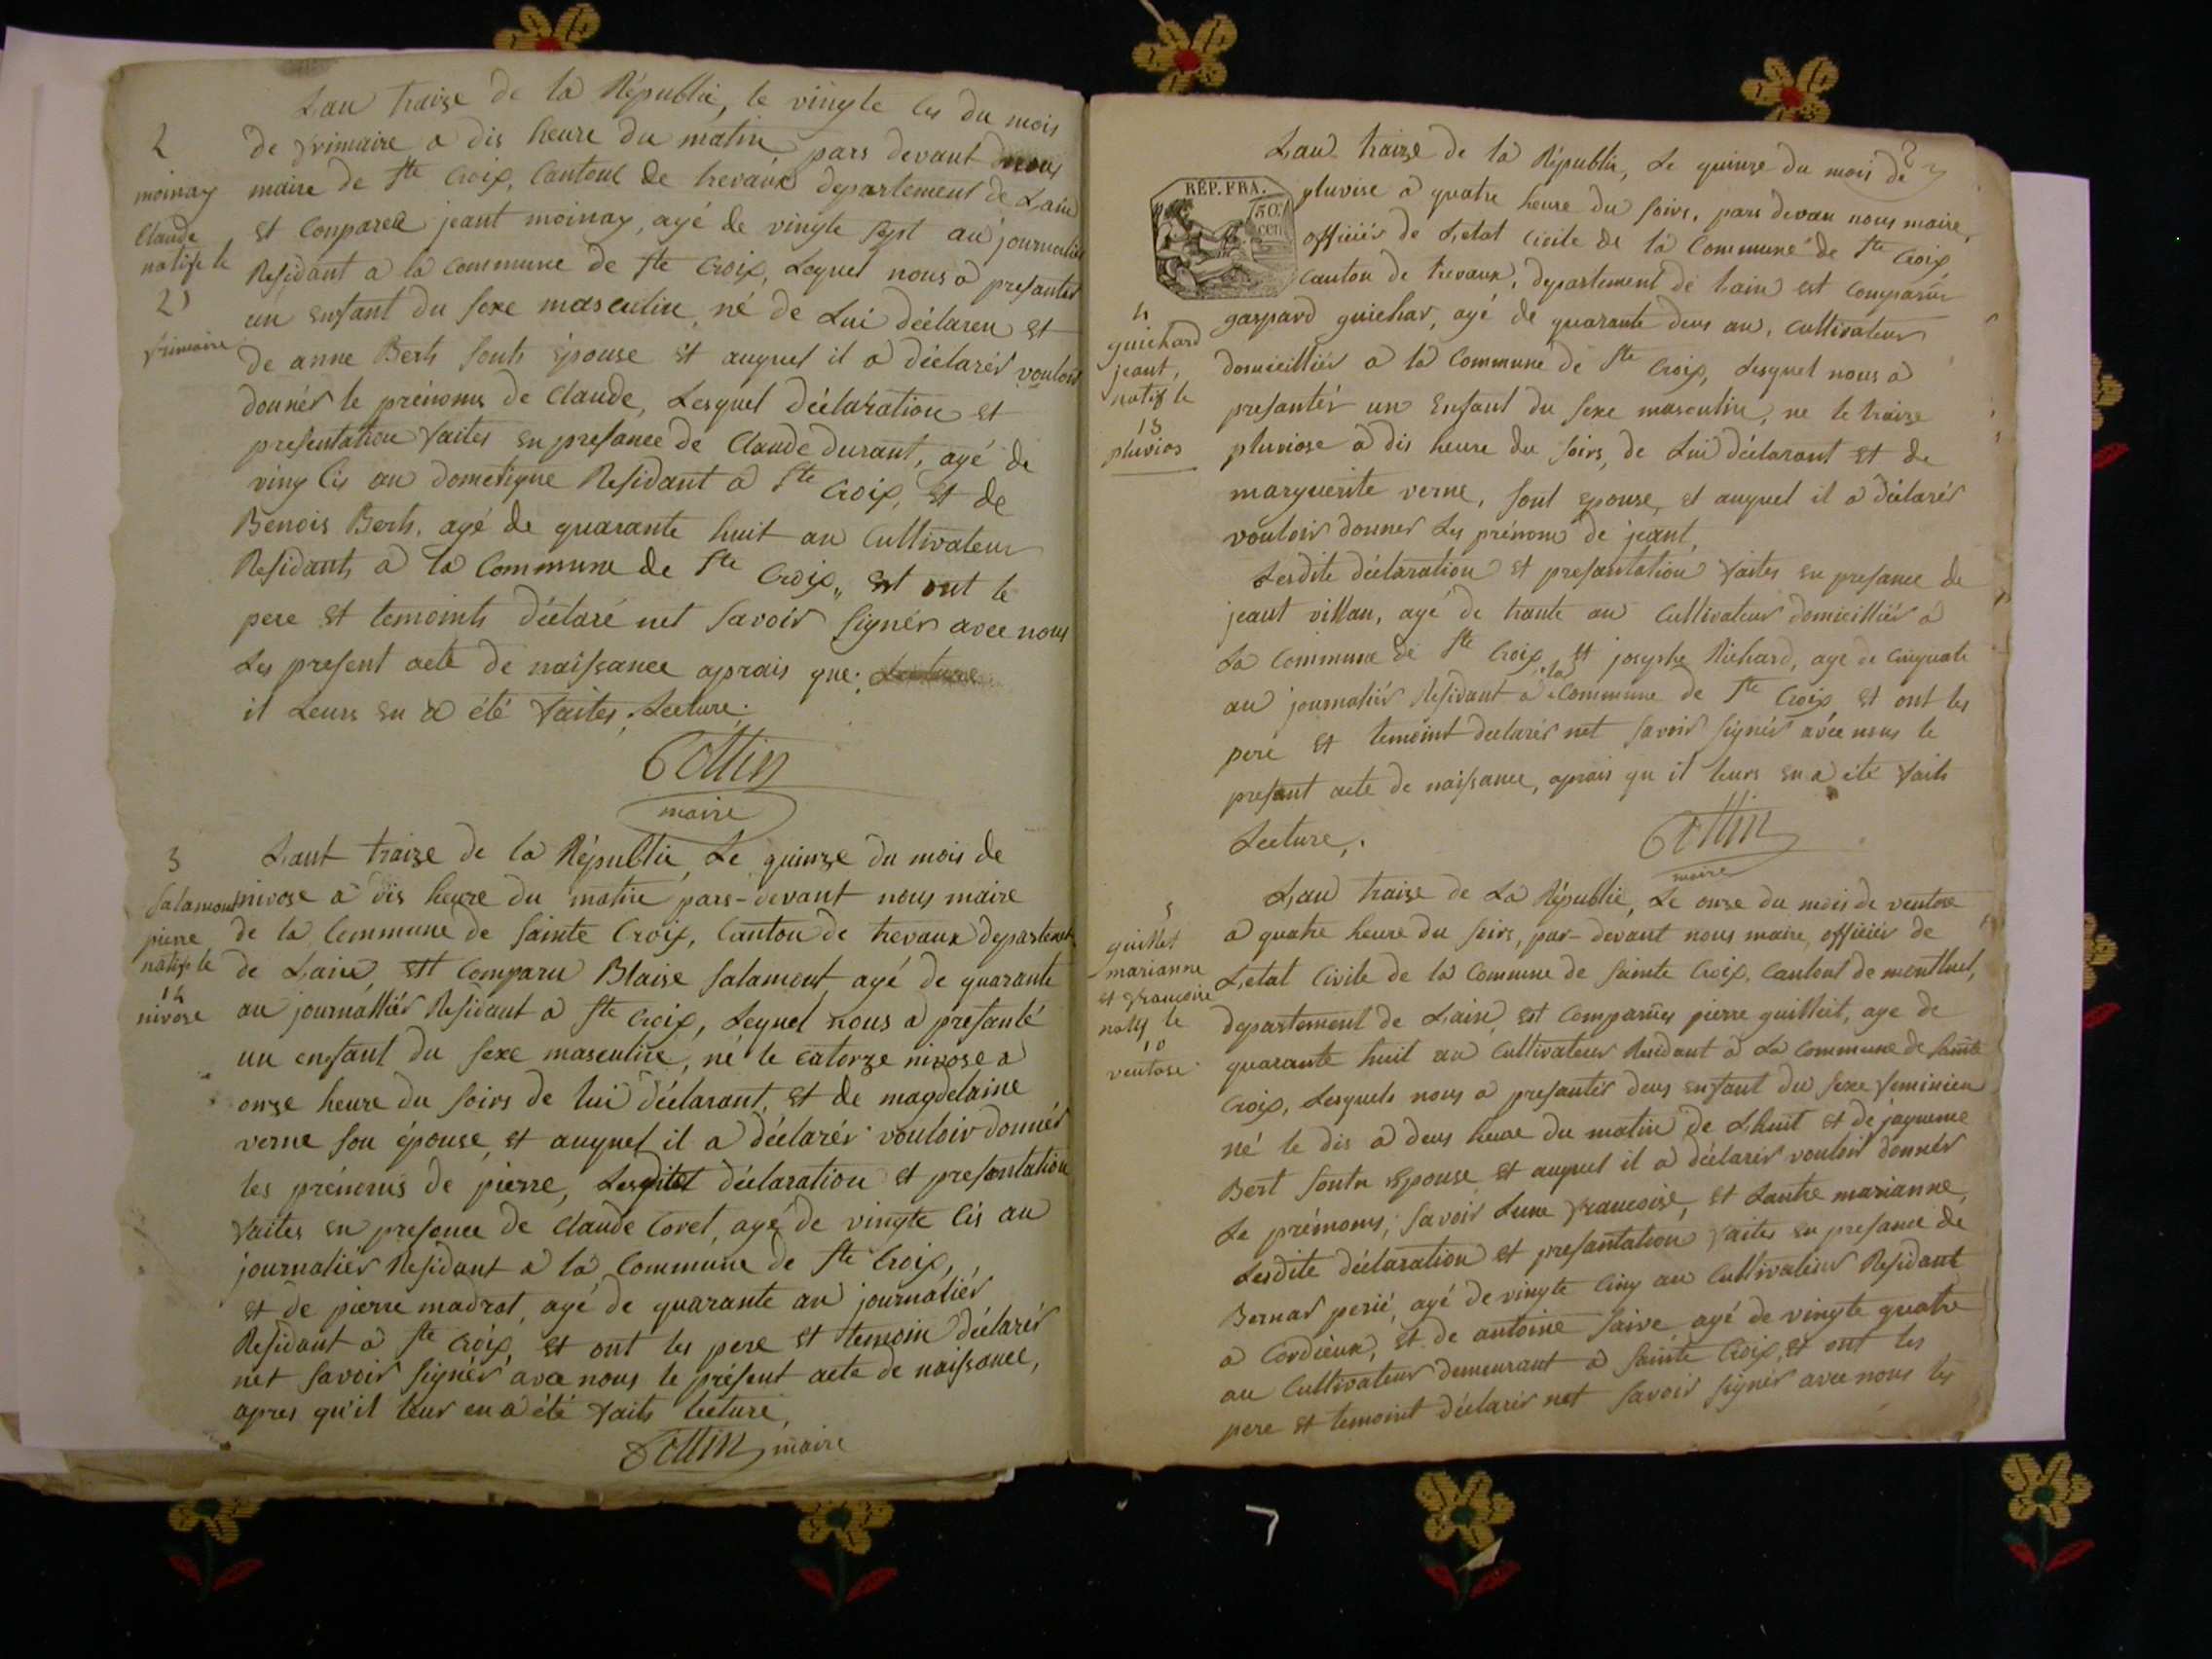 Lan traize de la Républic, le vingte cis du mois
de frimaire a dis heure du matin pars devant nous
maire de Ste Croix, Cantont de trevaux departement de Lain
et Comparea jeant moinay, agé de vingte sept an journalier
Residant a la Commune de Ste Croix, Lequel nous a presanter
un enfant du sexe masculin, né de Lui declaren et
de anne Bert sont épouse et auquel il a déclarér vouloir
donnér le prénoms de Claude, Lesquel déclaration et
presentation faites en presance de Claude durant, agé de
ving cis an domestique Residant a Ste Croix, et de
Benois Bert, agé de quarante huit an Cultivateur
Residant a la Commune de Ste Croix, et ont le
pere et temoints déclaré net savoir signér avec nous
Les present acte de naissance aprais que
it Leurs en a été faites, Lecture.
Cottin
maire
2
moinay
Claude
natife le
25
frimaire
Lant traize de la Républic, Le quinze du mois de
nivose a dis heure du matin pars-devant nous maire
de la Commune de sainte Croix, Canton de trevaux departement
de Lain, est Comparu Blaise salamont, agé de quarante
an journallier Residant a Ste Croix, Lequel nous a presanté
un enfant du sexe masculin, né le catorze nivose a
onze heure du soirs de lui déclarant, et de magdelaine
verne son épouse, et auquel il a déclarér vouloir donnér
les prénoms de pierre, Lesdites déclaration et presentation
faites en presence de Claude Coret, agé de vingte cis an
journaliér Residant a la Commune de Ste Croix,
et de pierre madrat, agé de quarante an journaliér
Residant a Ste Croix, et ont les pere et temoin déclarér
net savoir signér avec nous le présent acte de naissance,
apres qu'il leur en a été faits lecture,
Cottin maire
3
salamont
pierre
natife le
14
nivose
Lan traize de la Républic, Le quinze du mois de
pluvise a quatre heure du soirs, pars devan nous maire,
officiér de Letat Civile de la Commune de Ste Croix
Canton de trevaux, departement de Lain est Comparus
gaspard guichar, agé de quarante deus an, Cultivateur
domicilliér a la Commune de Ste Croix, Lesquel nous a
presantér un Enfant du sexe masculin, ne le traize
pluviose a dis heure du soirs, de Lui déclarant et de
marguerite verne, sont epouse, et auquel il a déclarér
vouloir donner Les prénom de jeant,
Lesdite déclaration et presantation faites en presance de
jeant villan, agé de trante an Cultivateur domicilliér a
La Commune de Ste Croix, et josephe Richard, age de Cinquante
an journaliér Residant a la Commune de Ste Croix et ont les
pere et temoint declarér net savoir signér avec nous le
presant acte de naissance, aprais qu il leurs en a été faits
Lecture,.
Cottin
maire
RÉP. FRA.
50
cen
4
guichard
jeant,
natif le
13
pluvios
Lan traize de La Républic, Le onze du mois de ventose
a quatre heure du soirs, par-devant nous maire officiér de
Letat Civile de la Commune de sainte Croix, Cantont de montluel,
departement de Lain, est Comparues pierre guilleit, age de
quarante huit an Cultivateur Residant a La Commune de sainte
Croix, Lesquels nous a presantér deus enfant du sexe feminien
né le dis a deus heure du matin de Lhuit et de jaqueme
Bert sontn epouse et auquel il a déclarér vouloir donnér
Le prénoms, savoir Lune francoise, et Lautre marianne,
Lesdite déclaration et presantation faites en presance de
Bernar perié, agé de vingte cinq an Cultivateur Residant
a Cordieux, et de antoine saive agé de vingte quatre
an Cultivateur demeurant a sainte Croix, et ont les
pere et temoint déclarér net savoir signér avec nous les
5
guillet
marianne
et francoise
natif le
10
ventose